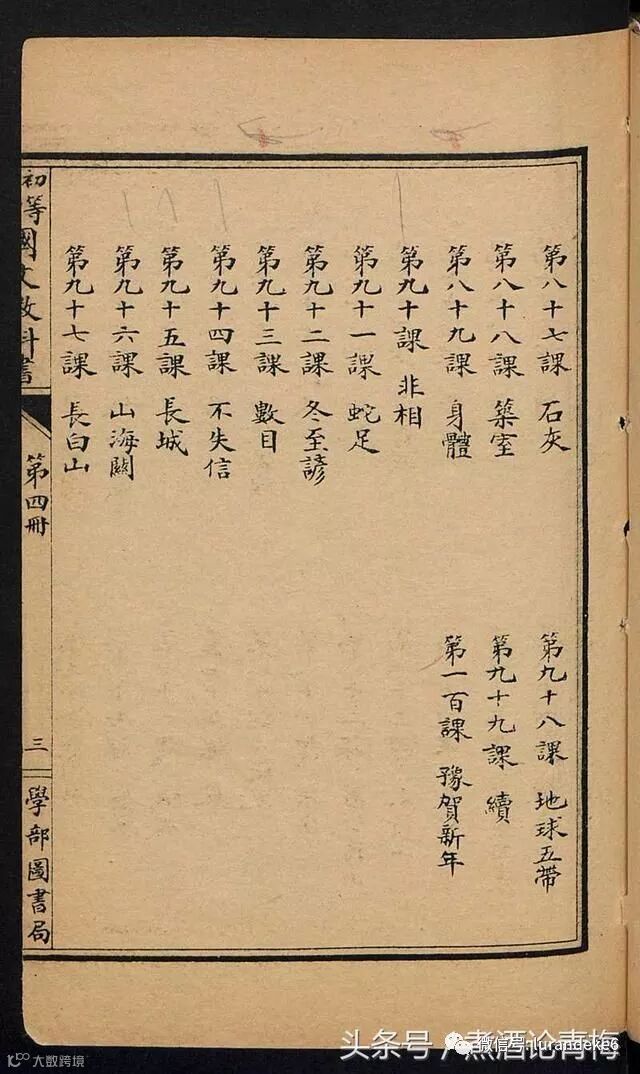 第八十七課 石灰
第八十八課 築室
第八十九課 身體
第九十課 非相
第九十一課 蛇足
第九十二課 冬至諺
第九十三課 數目
第九十四課 不失信
第九十五課 長城
第九十六課 山海關
第九十七課 長白山
第九十八課 地球五帶
第九十九課 續
第一百課 豫賀新年
初等國文教科書
第四冊
三
學部圖書局
头条号 / 煮酒论青梅
微信号: lurandeke6
大数跨境